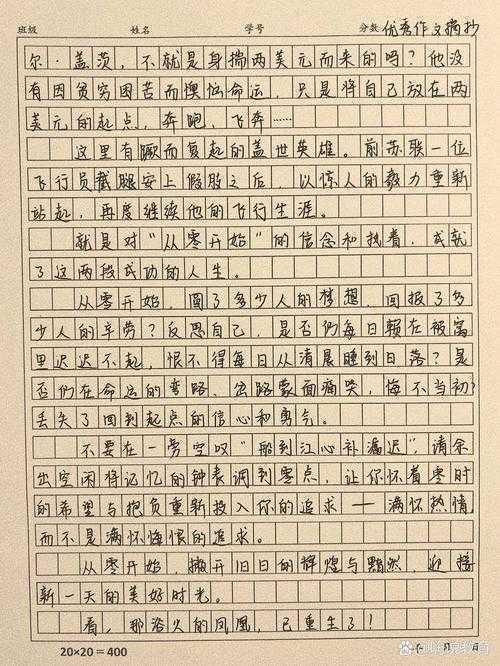 班级 姓名 学号 分数 优秀作文摘抄
尔·盖茨，不就是身揣两美元而来的吗？他没
有因贫穷困苦而懊恼命运，只是将自己放在两
美元的起点，奔跑，飞奔……
这里有蹶而复起的盖世英雄。前苏联一位
飞行员截腿安上假肢之后，以惊人的毅力重新
站起，再度继续他的飞行生涯。
就是对“从零开始”的信念和执着，成就
了这两段成功的人生。
从零开始，圆了多少人的梦想，回报了多
少人的辛劳？反思自己，是否们每日赖在被窝
里迟迟不起，恨不得每日从清晨睡到日落？是
否们在命运的弯路、岔路蒙面痛哭，悔不当初？
丢失了回到起点的信心和勇气。
不要在一旁空叹“船到江心补漏迟”，请余
出空闲将记忆的钟表调到零点，让你怀着零时
的希望与抱负重新投入你的追求——满怀热情，
而不是满怀悔恨的追求。
从零开始，撇开旧日的辉煌与黯然，迎接
新一天的美好时光。
看，那浴火的凤凰，已重生了！
20×20=400 年 月 日